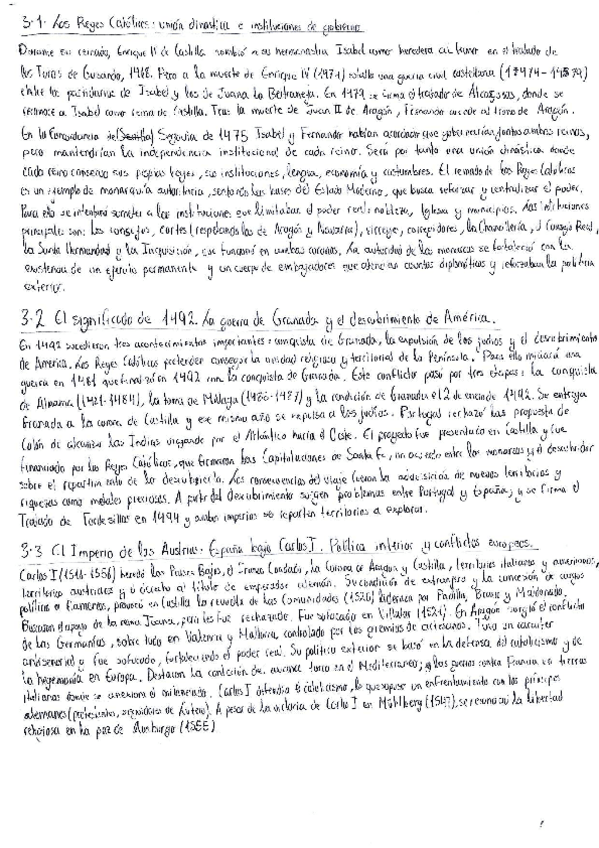 3.1. Los Reyes Católicos: unión dinástica e instituciones de gobierno
Durante su reinado, Enrique IV de Castilla nombró a su hermanastra Isabel como heredera al trono en el tratado de
los Toros de Guisando, 1468. Pero a la muerte de Enrique IV (1474) estalla una guerra civil castellana (1474-1479)
entre los partidarios de Isabel y los de Juana la Beltraneja. En 1479 se firma el tratado de Alcaçovas, donde se
reconoce a Isabel como reina de Castilla. Tras la muerte de Juan II de Aragón, Fernando accede al trono de Aragón.
En la Concordia de Segovia de 1475 Isabel y Fernando habían acordado que gobernarían juntos ambos reinos,
pero mantendrían la independencia institucional de cada reino. Será por tanto una unión dinástica donde
cada reino conserva sus propias leyes, sus instituciones, lengua, economía y costumbres. El reinado de los Reyes Católicos
es un ejemplo de monarquía autoritaria, sentando las bases del Estado Moderno, que busca reforzar y centralizar el poder.
Para ello se intentará someter a las instituciones que limitaban el poder real: nobleza, Iglesia y municipios. Las instituciones
principales son: los consejos, cortes (respetando las de Aragón y Navarra), virreyes, corregidores, la Chancillería, el Consejo Real,
la Santa Hermandad y la Inquisición, que funcionó en ambas coronas. La autoridad de los monarcas se fortaleció con la
existencia de un ejército permanente y un cuerpo de embajadores que atendían asuntos diplomáticos y reforzaban la política
exterior.
3.2 El significado de 1492. La guerra de Granada y el descubrimiento de América.
En 1492 sucedieron tres acontecimientos importantes: conquista de Granada, la expulsión de los judíos y el descubrimiento
de America. Los Reyes Católicos pretenden conseguir la unidad religiosa y territorial de la Península. Para ello iniciará una
guerra en 1481 que finalizó en 1492 con la conquista de Granada. Este conflicto pasó por tres etapas: la conquista
de Alhama (1481-1484), la toma de Málaga (1486-1487) y la rendición de Granada el 2 de enero de 1492. Se entrega
Granada a la corona de Castilla y ese mismo año se expulsa a los judíos. Portugal rechazó las propuesta de
Colón de alcanzar las Indias viajando por el Atlántico hacia el Oeste. El proyecto fue presentado en Castilla y fue
financiado por los Reyes Católicos, que firmaron las Capitulaciones de Santa Fe, un acuerdo entre los monarcas y el descubridor
sobre el repartimiento de lo descubierto. Las consecuencias del viaje fueron la adquisición de nuevos territorios y
riquezas como metales preciosos. A partir del descubrimiento surgen problemas entre Portugal y España, y se firma el
Tratado de Tordesillas en 1494 y ambos imperios se reparten territorios a explorar.
3.3 El Imperio de los Austrias: España bajo Carlos I. Política interior y conflictos europeos.
Carlos I (1516-1556) heredó los Países Bajos, el Franco Condado, la Corona de Aragón y Castilla, territorios italianos y americanos,
territorios austriacos y el título de emperador alemán. Su condición de extranjero y la concesión de cargos
políticos a flamencos, provocó en Castilla la revuelta de las Comunidades (1520) lideradas por Padilla, Bravo y Maldonado.
Buscaron el apoyo de la reina Juana, pero fue rechazado. Fue sofocado en Villalar (1521). En Aragón surgió el conflicto
de las Germanías, sobre todo en Valencia y Mallorca, controlado por los gremios de artesanos. Tuvo un carácter
antiseñorial y fue sofocado, fortaleciendo el poder real. Su política exterior se basó en la defensa del catolicismo y de
la hegemonía en Europa. Destacan la contención del avance turco en el Mediterráneo; y las guerras contra Francia en tierras
italianas donde se anexiona el milanesado. Carlos I defendió el catolicismo, lo que supuso un enfrentamiento con los príncipes
alemanes (protestantes, seguidores de Lutero). A pesar de la victoria de Carlos I en Mühlberg (1547), se reconoció la libertad
religiosa en la paz de Ausburgo (1555)